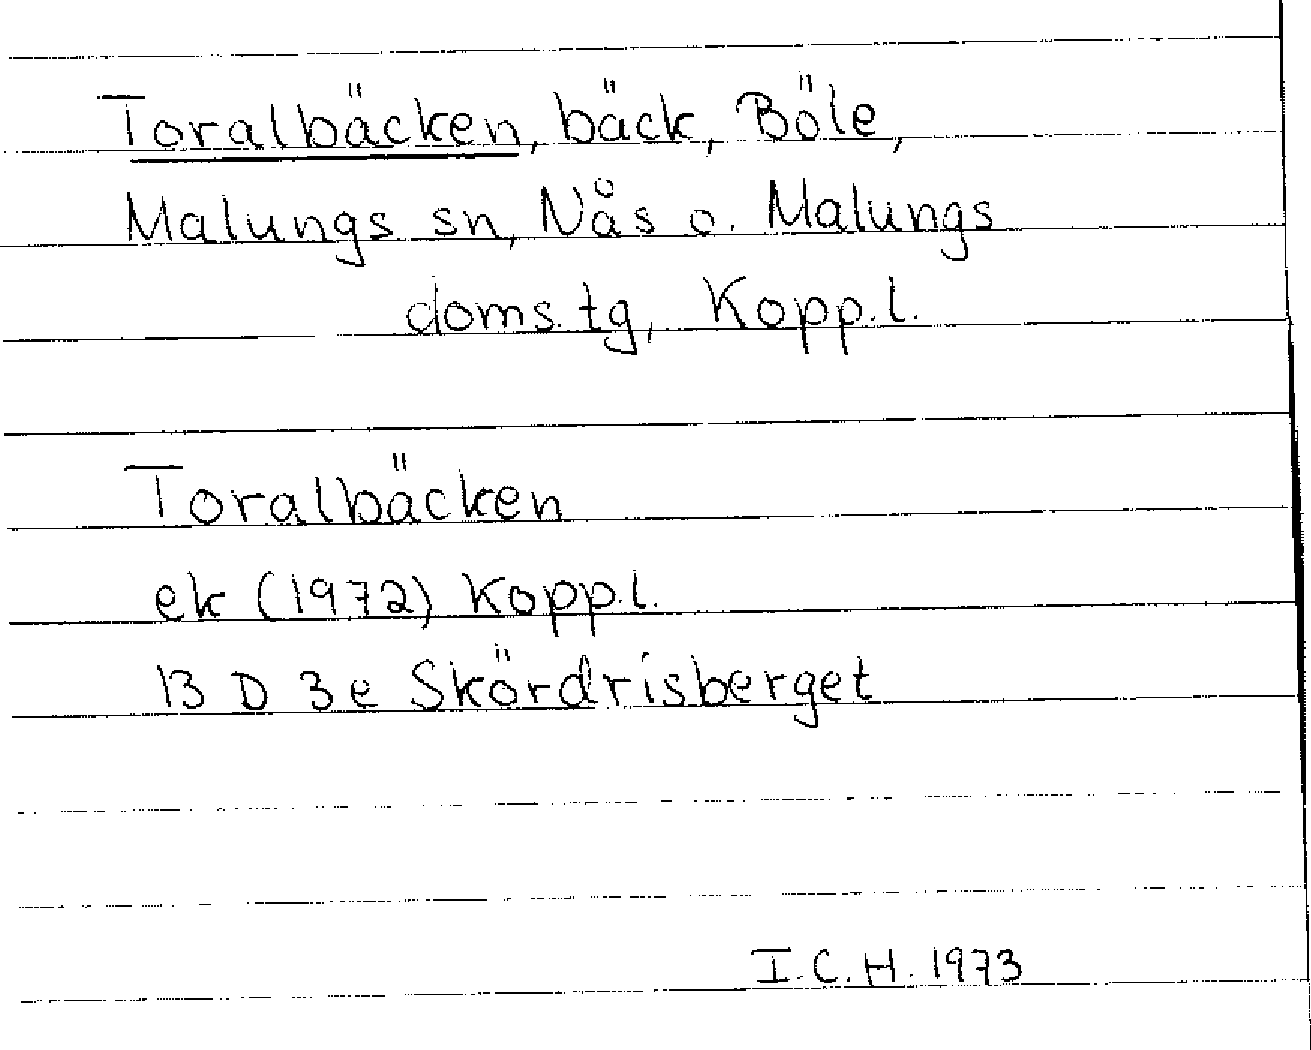 Toralbäcken, bäck, Böle,
Malungs sn, Nås o. Malungs
doms.tg, Kopp.l.
Toralbäcken
ek (1972) Kopp.l.
13 D 3e Skördrisberget
I.C.H. 1973